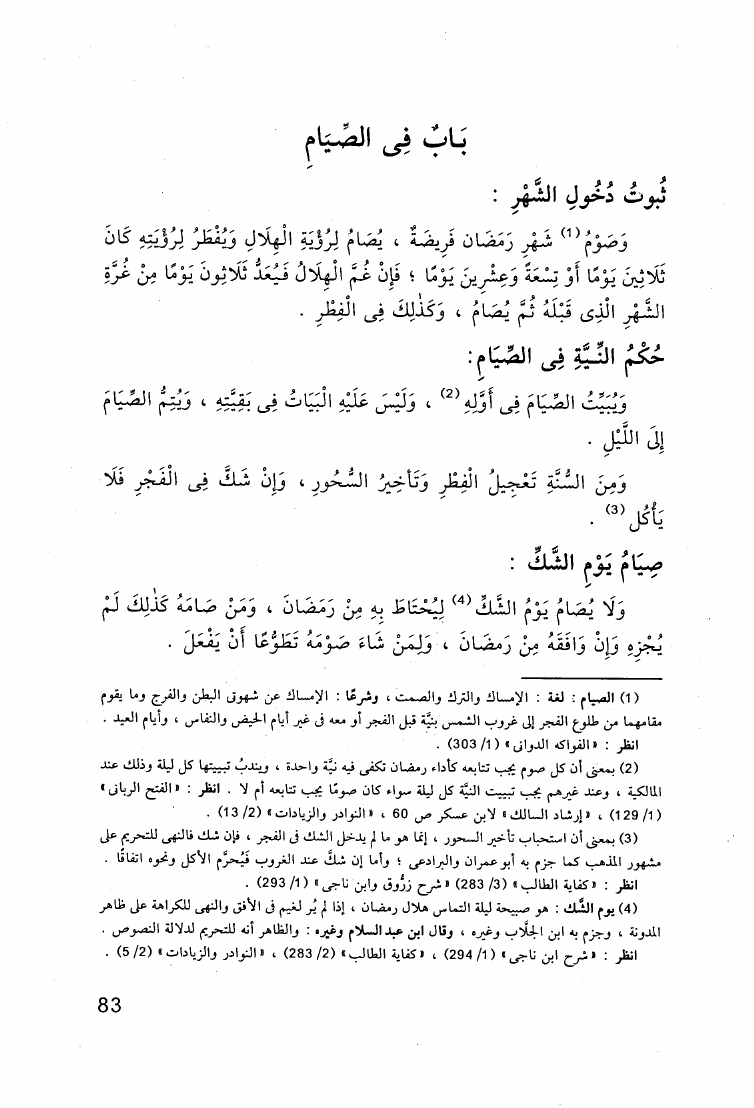 بَابٌ فِى الصِّيَامِ
ثُبوتُ دُخُولِ الشَّهْرِ :
وَصَوْمُ (1) شَهْرِ رَمَضَان فَرِيضَةٌ ، يُصَامُ لِرُؤْيَةِ الْهِلاَلِ وَيُفْطَرُ لِرُؤْيَتِهِ كَانَ
ثَلَاثِينَ يَوْمًا أَوْ تِسْعَةً وَعِشْرِينَ يَوْمًا ؛ فَإِنْ غُمَّ الْهِلَالُ فَيُعَدُّ ثَلَاثِونَ يَوْمًا مِنْ غُرَّةِ
الشَّهْرِ الَّذِى قَبْلَهُ ثُمَّ يُصَامُ ، وَكَذٰلِكَ فِى الْفِطْرِ .
حُكْمُ النِّيَّةِ فِى الصِّيَامِ:
وَيُبَيِّتُ الصِّيَامَ فِى أَوَّلِهِ (2) ، وَلَيْسَ عَلَيْهِ الْبَيَاتُ فِى بَقِيَّتِهِ ، وَيُتِمُّ الصِّيَامَ
إِلَى اللَّيْلِ .
وَمِنَ السُّنَّةِ تَعْجِيلُ الْفِطْرِ وَتَأخِيرُ السُّحُورِ ، وَإِنْ شَكَّ فِى الْفَجْرِ فَلَا
يَأكُل (3) .
صِيَامُ يَوْمِ الشَّكِّ :
وَلَا يُصَامُ يَوْمُ الشَّكِّ (4) لِيُحْتَاطَ بِهِ مِنْ رَمَضَانَ ، وَمَنْ صَامَهُ كَذٰلِكَ لَمْ
يُجْزِهِ وَإِنْ وَافَقَهُ مِنْ رَمضَانَ ، وَلِمَنْ شَاءَ صَوْمَهُ تَطَوُّعًا أَنْ يَفْعَلَ .
(1) الصيام : لغة : الإمساك والترك والصمت ، وشرعًا : الإمساك عن شهوتى البطن والفرج وما يقوم
مقامهما من طلوع الفجر إلى غروب الشمس بنيَّة قبل الفجر أو معه فى غير أيام الحيض والنفاس ، وأيام العيد .
انظر : « الفواكه الدوانى » (1/ 303) .
(2) بمعنى أن كل صوم يجب تتابعه كأداء رمضان تكفى فيه نيَّة واحدة ، ويندبُ تبييتها كل ليلة وذلك عند
المالكية ، وعند غيرهم يجب تبييت النيَّة كل ليلة سواء كان صومًا يجب تتابعه أم لا . انظر : « الفتح الربانى »
(1/ 129) ، « إرشاد السالك » لابن عسكر ص 60 ، « النوادر والزيادات » (2/ 13) .
(3) بمعنى أن استحباب تأخير السحور ، إنما هو ما لم يدخل الشك فى الفجر ، فإن شك فالنهى للتحريم على
مشهور المذهب كما جزم به أبو عمران والبرادعى ؛ وأما إن شكَّ عند الغروب فيُحرَّم الأكل ونحوه اتفاقًا .
انظر : « كفاية الطالب » (3/ 283) « شرح زرُّوق وابن ناجى » (1/ 293) .
(4) يوم الشك : هو صبيحة ليلة التماس هلال رمضان ، إذا لم يُر لغيم فى الأفق والنهى للكراهة على ظاهر
المدونة ، وجزم به ابن الجلَّاب وغيره ، وقال ابن عبد السلام وغيره : والظاهر أنه للتحريم لدلالة النصوص .
انظر : « شرح ابن ناجى » (1/ 294) ، « كفاية الطالب » (2/ 283) ، « النوادر والزيادات » (2/ 5) .
83